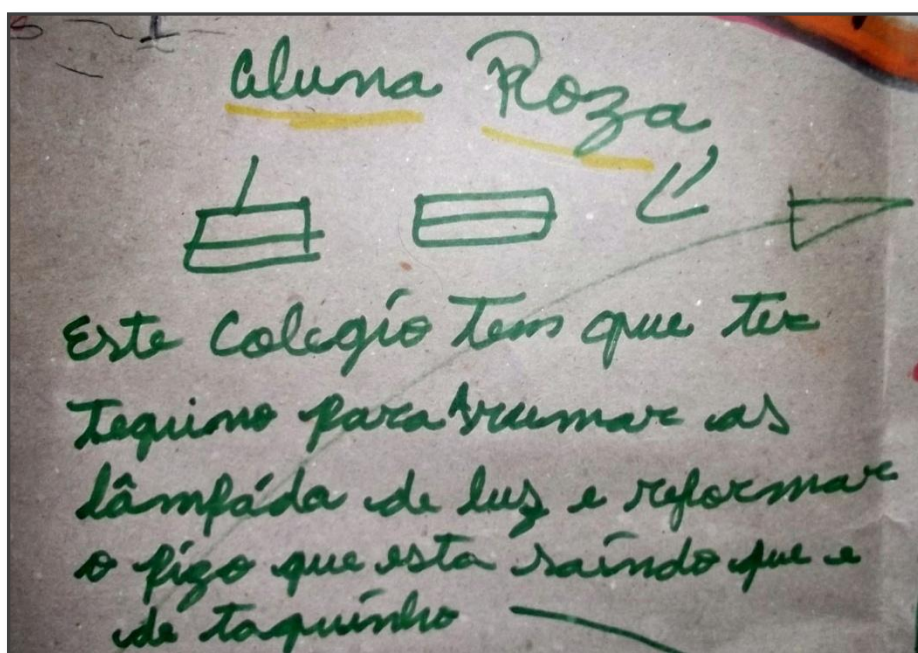 Aluna Roza
Este Colegío tem que ter
Tequino para Arrumar as
lâmpáda de luz e reformar
o pizo que esta saíndo que e
de taquínho